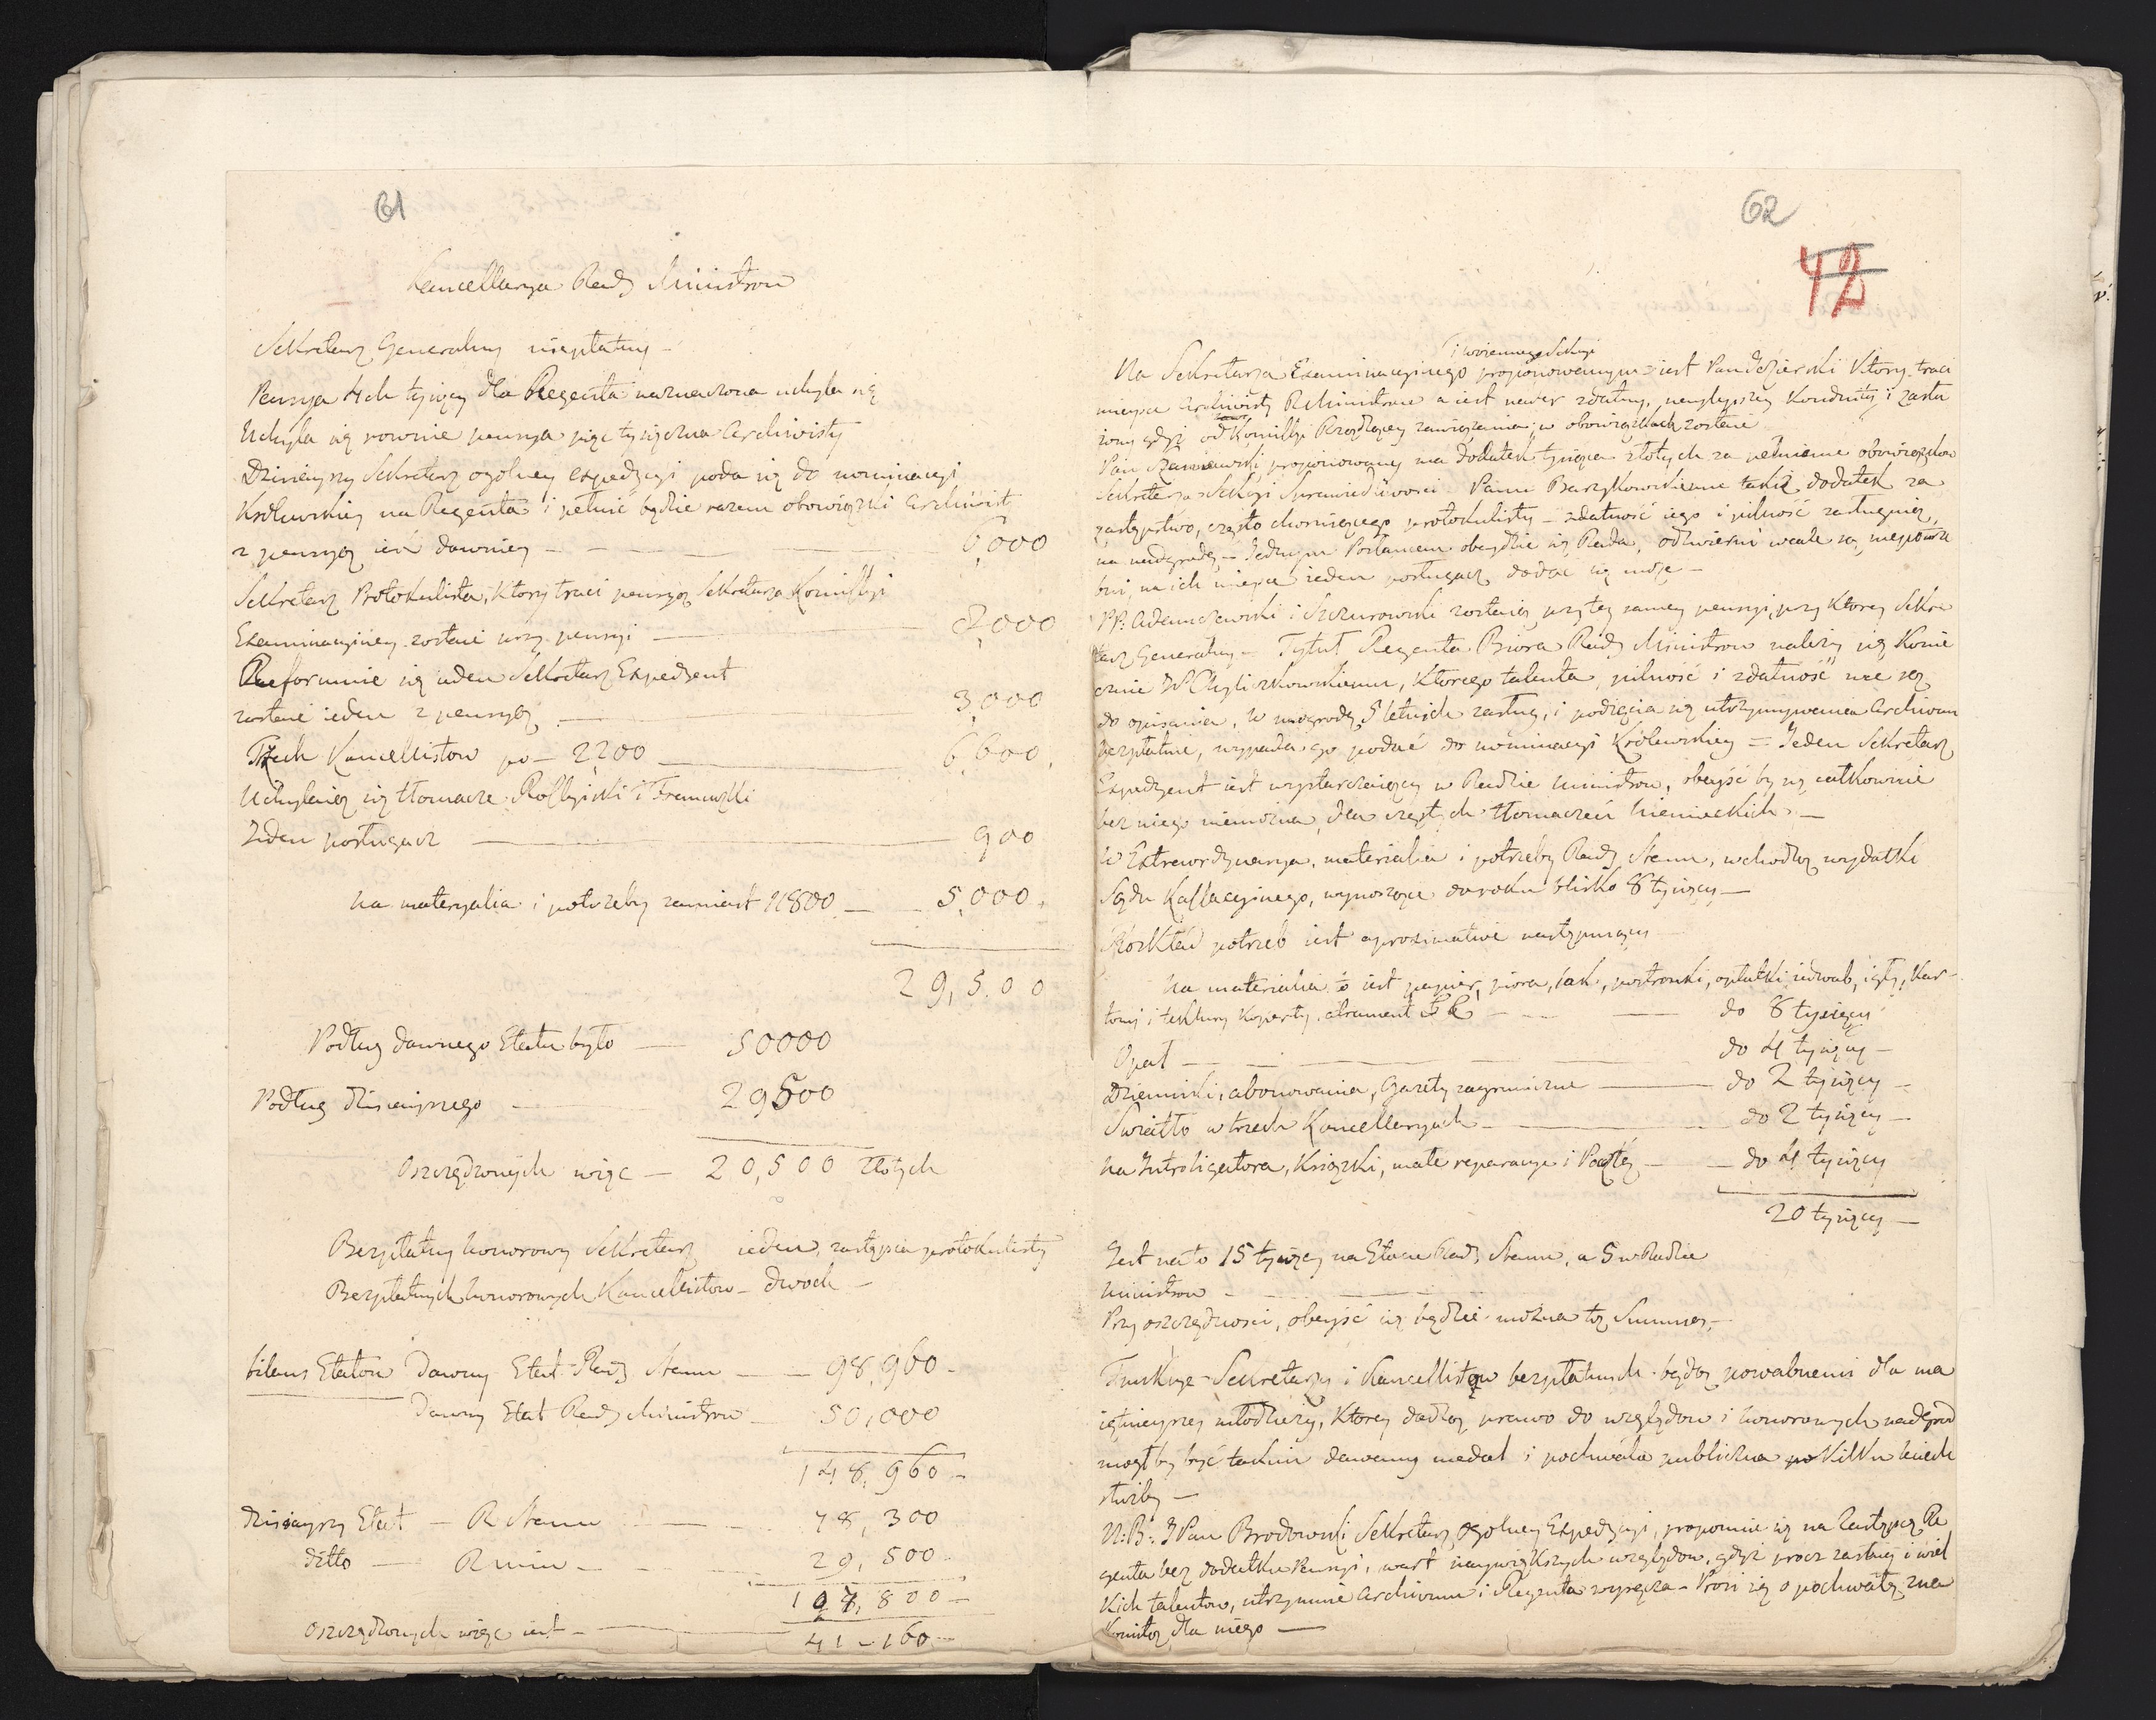 61
Kancellarya Rady Ministrow
Sekretarz Generalny niepłatny -
Pensya 4ch tysięcy dla Regenta naznaczona uchyla się
Uchyla się rownie pensya pięc tysięczna Archiwisty
Dzisieyszy Sekretarz ogolney expedycyi poda się do nominacyi
Krolewskiey na Regenta i pełnić będzie razem obowiązki Archiwist
z pensyą iak dawniey - - 6,000
Sekretarz Protokulista, Ktory traci pensyą Sekretarza Komissyi
Examinacyiney zostaie przy pensyi - 8,000
Reformuie się ieden Sekretarz Expedyent
zostaie ieden z pensyą - 3,000
Trzech Kancellistow po - 2,200 - 6,600,
Uchylaią się tłomacze Rossyiski i Francuzki
Ieden posługacz - 900
Na materyalia i potrzeby zamiast 11800 - 5,000.
29,5.00
Podług dawnego Etatu było - 50000
Podług dzisieyszego - 29500
Oszczędzonych więc - 20,500 złotych
Bezpłatny honorowy Sekretarz ieden, zastępca protokulisty
Bezpłatnych honorowych Kancellistow - dwoch -
bilans Etatow Dawny Etat Rady Stanu - - 98,960 -
Dawny Etat Rady Ministrow - 50,000
148,960 -
dzisieyszy Etat - R Stanu - 78,300
ditto - R min - - 29,500 -
107,800 -
Oszczędzonych więc iest - 41-160 -
62
42
i woienney Sekcyi
Na Sekretarza Examinacyinego proponowanym iest Pan Jezierski Ktory traci
mieysce Archiwisty R Ministrow a iest nader zdatny, naylepszey Konduity i zasłu
żony gdyż od Komissyi Rządzącey zawiązania w obowiązkach zostaie
Pan proponowany ma dodatek tysiąca złotych za pełnienie obowiązkow
Sekretarza Sekcyi Sprawiedliwosci - Panu Barzykowskiemu takiż dodatek za
zastępstwo, często choruiącego protokulisty - zdatność iego i pilność zasługuią
na nadgrodę - Jednym Posłancem obeydzie się Rada, odźwierni wcale są niepotrze
bni, na ich mieysce ieden posługacz dodac się może -
PP. Adamczewski i Szczurowski zostaią przy tey samey pensyi, przy Ktorey Sekre
tarz Generalny - Tytuł Regenta Biora Rady Ministrow należy się Konie
cznie JW Chyliczkowskiemu, Ktorego talenta, pilność i zdatność nie są
do opisania, w nagrodę 5 letnich zasług, i podięcia się utrzymywania Archiwum
bezpłatnie, wypada go podać do nominacyi Krolewskiey = Jeden Sekretarz
Expedyent iest wystarczaiący w Radzie Ministrow, obeyść by się całkowicie
bez niego niemożna, dla częstych tłomaczeń Niemieckich -
W Extraordynarya, materialia i potrzeby Rady Stanu, wchodzą wydatki
Sądu Kassacyinego, wynoszące do roku blisko 8 tysięcy -
Rozkład potrzeb iest aproximative następuiący
Na materialia to iest papier, piora, lak, postronki, opłatki, iedwab, igły, Kar-
tony i tektury Koperty, atrament &c - - do 8 tysięcy
Opał - - do 4 tysięcy -
Dzienniki, abonowania, Gazety zagraniczne - do 2 tysięcy -
Swiatło w trzech Kancellaryach - - do 2 tysięcy -
Na Introligatora, Książki, małe reparacye i Pocztę - - do 4 tysięcy
20 tysięcy -
Jest na to 15 tysięcy na Etacie Rady Stanu, a 5 w Radzie
Ministrow - -
Przy oszczędnosci, obeyść się będzie można tą Summą -
Funkcye Sekretarzy i Kancellistow bezpłatnych będą powabnemi dla ma
iętnieyszey młodzieży, Ktorey dadzą prawo do względow i honorowych nadgrod
mogł by być takim dawany medal i pochwała publiczna po Kilku leciech
służby -
N:B: JPan Brodowski Sekretarz Ogolney Expedycyi, proponuie się na Zastępcę Re
genta bez dodatku Pensyi, wart naywiększych względow, gdyż procz zasług i wiel
kich talentow, utrzymuie Archiwum i Regenta wyręcza - Prosi się o pochwałę zna
komitą dla niego -